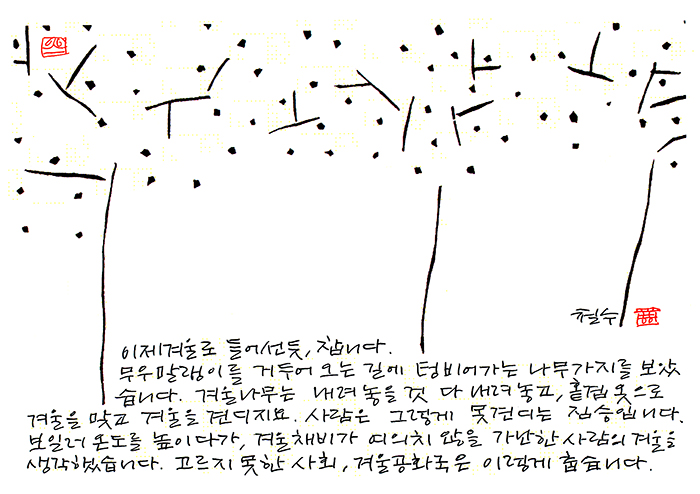 철수
이제 겨울로 들어선듯, 찹니다.
무우말랭이를 거두어 오는 길에 텅비어가는 나무가지를 보았
습니다. 겨울나무는 내려 놓을것 다 내려놓고, 홑겹 옷으로
겨울을 맞고 겨울을 견디지요. 사람은 그렇게 못견디는 짐승입니다.
보일러 온도를 높이다가, 겨울채비가 여의치 않을 가난한 사람의 겨울을
생각했습니다. 고르지 못한 사회, 겨울공화국은 이렇게 춥습니다.